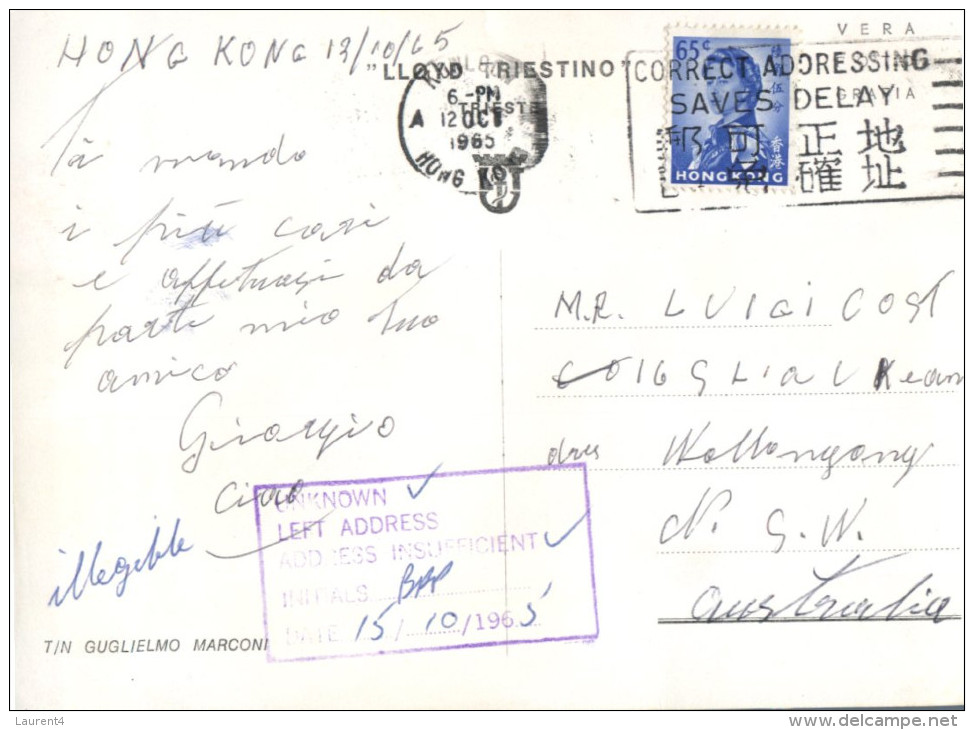 HONG KONG 13/10/65
VERA
"LLOYD TRIESTINO"
TRIESTE
GRAFIA
65¢
香港
HONG KONG
6-PM
A 12 OCT
1965
HONG KONG
CORRECT ADDRESSING
SAVES DELAY
正 地
確 址
mando
i più cari
e affetuosi da
parte mio tuo
amico
Giorgio
ciao
M.R. LUIGI COST
dres Wollongong
N. S. W.
Australia
UNKNOWN ✓
LEFT ADDRESS
ADDRESS INSUFFICIENT ✓
INITIALS
DATE 15/10/1965
illegible
T/N GUGLIELMO MARCONI
Laurent4
www.delcampe.net